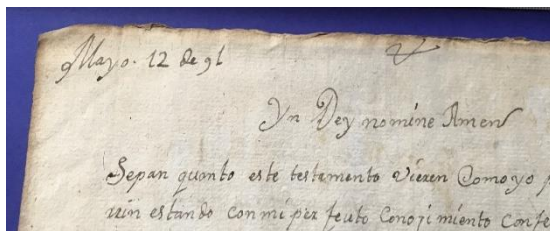 Mayo. 12 de 91
Yn Dey nomine Amen
Sepan quanto este testamento Vieren Como yo
estando con mi perfeuto Conojimiento